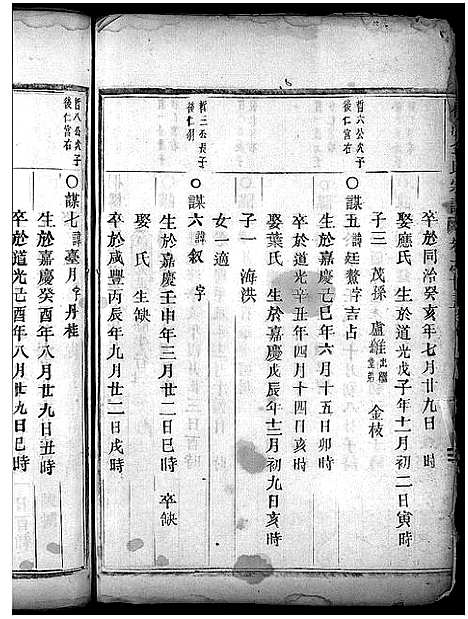 卒於同治癸亥年七月廿九日 時
娶應氏 生於道光戊子年十一月初二日寅時
子三 茂採 盧雄出繼堂弟 金枝
哲六公次子
後仁富右
○謀五諱廷鰲字吉占
生於嘉慶己巳年六月十五日卯時
卒於道光辛丑年四月十四日亥時
娶葉氏 生於嘉慶戊辰年十二月初九日亥時
子一 海洪
女一適
哲三公長子
後仁
○謀六諱 叙 字
生於嘉慶壬申年三月廿二日巳時 卒缺
娶 氏 生缺
卒於咸豐丙辰年九月廿二日戌時
哲八公次子
後仁富右
○謀七諱臺月字丹桂
生於嘉慶癸酉年八月廿九日丑時
卒於道光己酉年八月廿九日巳時